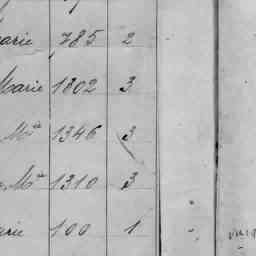 arie 785 2
Marie 1302 3
Mie 1346 3
Mie 1310 3
arie 100 1